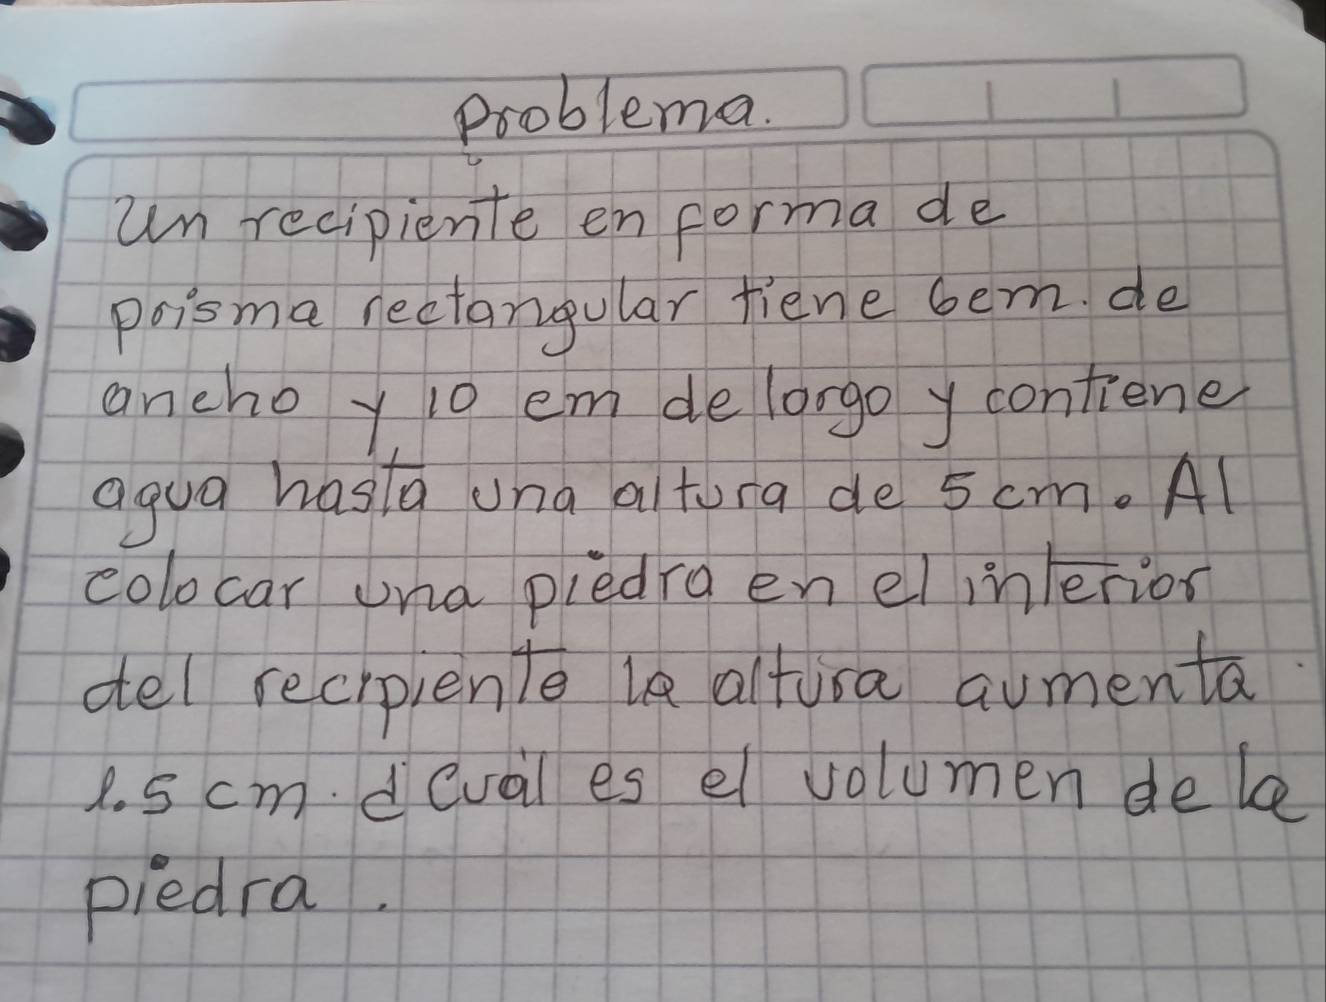 Problema.
Un recipiente en forma de
prisma rectangular tiene 6cm. de
ancho y 10 cm de largo y contiene
agua hasta una altura de 5 cm. Al
colocar una piedra en el interior
del recipiente la altura aumenta
1.5 cm. ¿Cuál es el volumen de la
piedra.